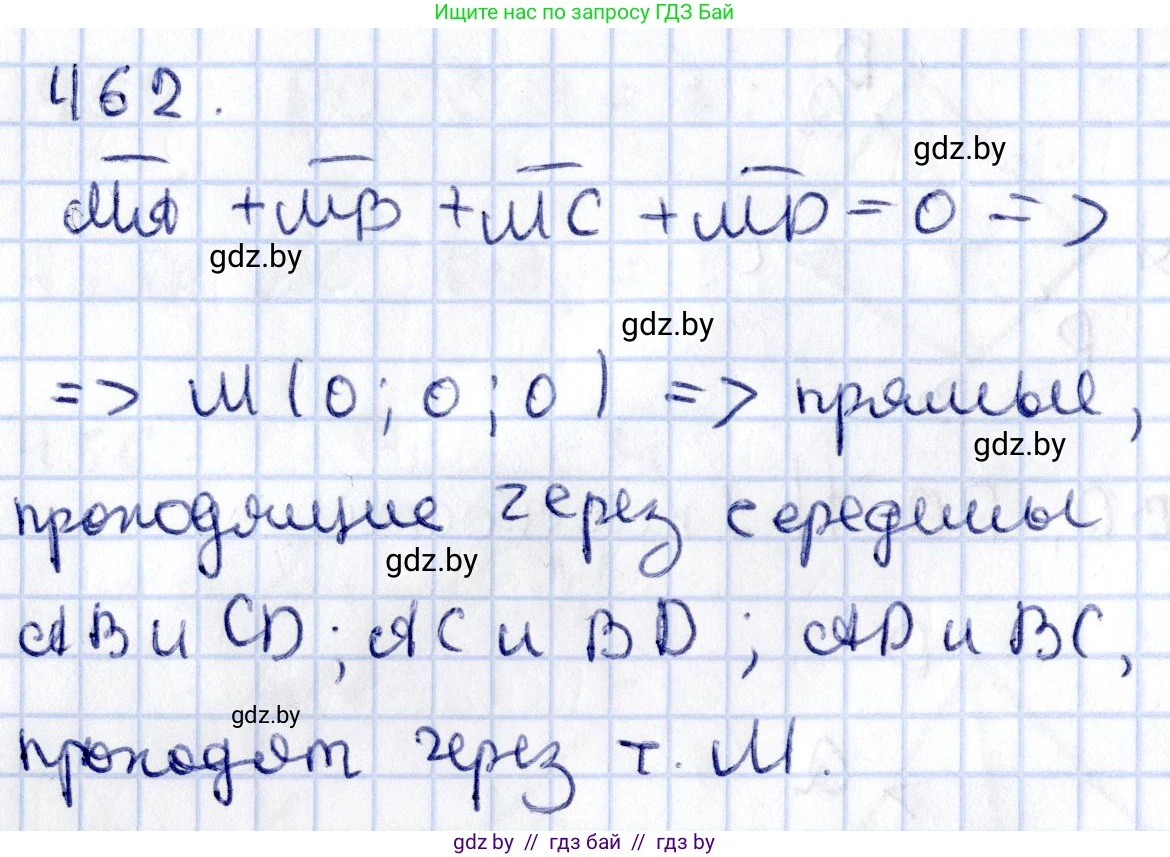 Ищите нас по запросу ГДЗ Бай
462.
gdz.by
MA + MB + MC + MD = 0 =>
gdz.by
gdz.by
=> M (0; 0; 0) => прямые,
gdz.by
проходящие через середины
gdz.by
AB и CD; AC и BD; AD и BC,
gdz.by
проходят через т. M.
gdz.by // гдз бай // гдз by